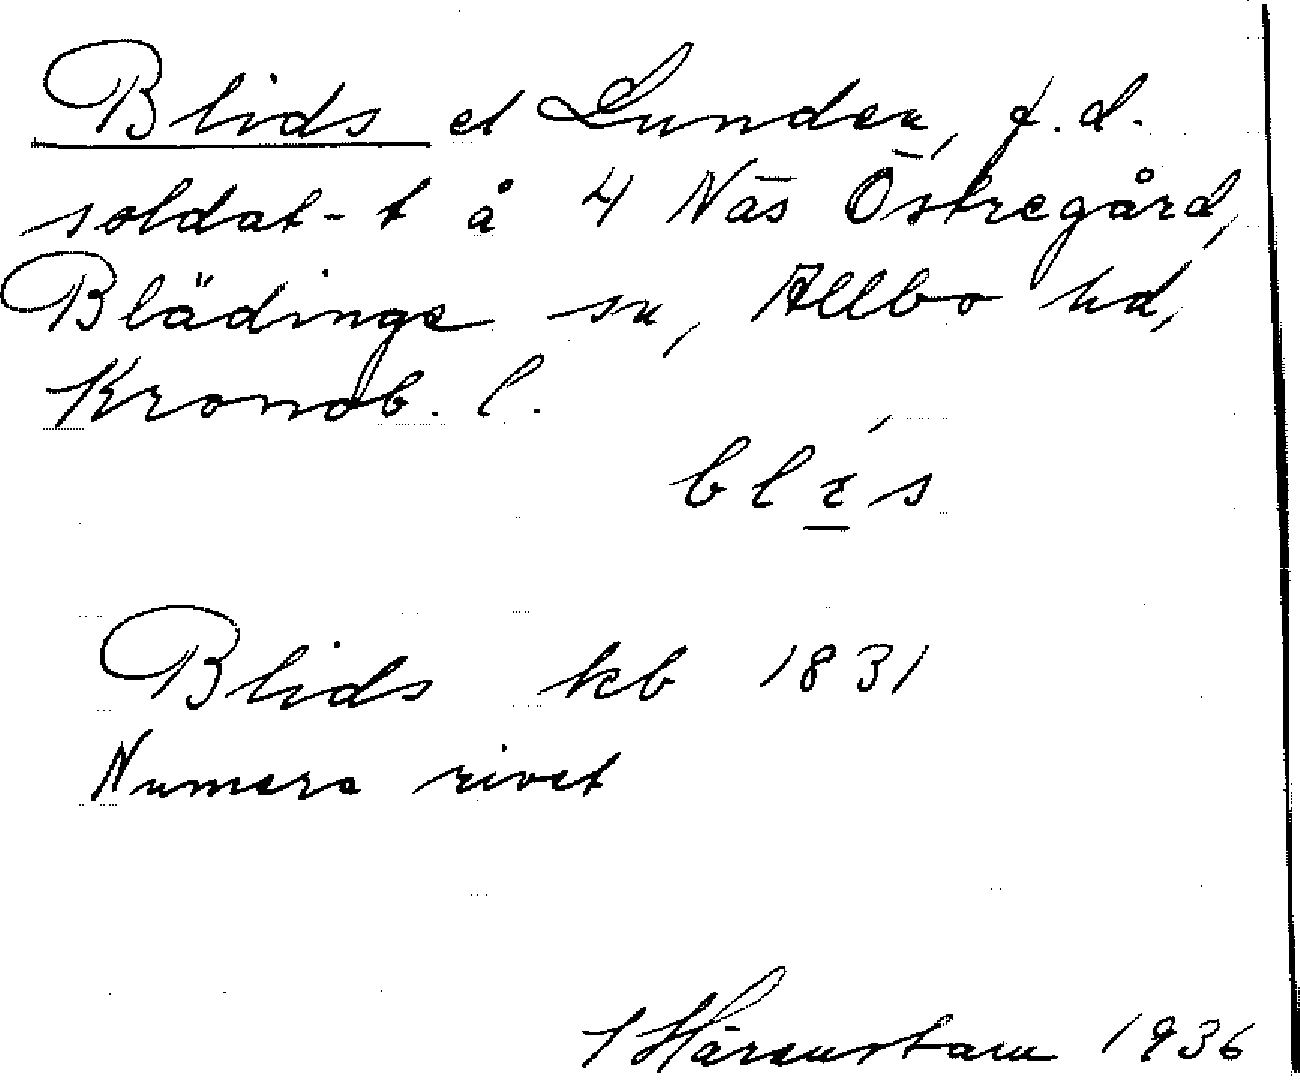 Blids el Lunden, f.d.
soldat-t å 4 Näs Östregård,
Blädinge sn, Allbo hd,
Kronob. l.
blɪ̱s
Blids kb 1831
Numera rivet
Härenstam 1936